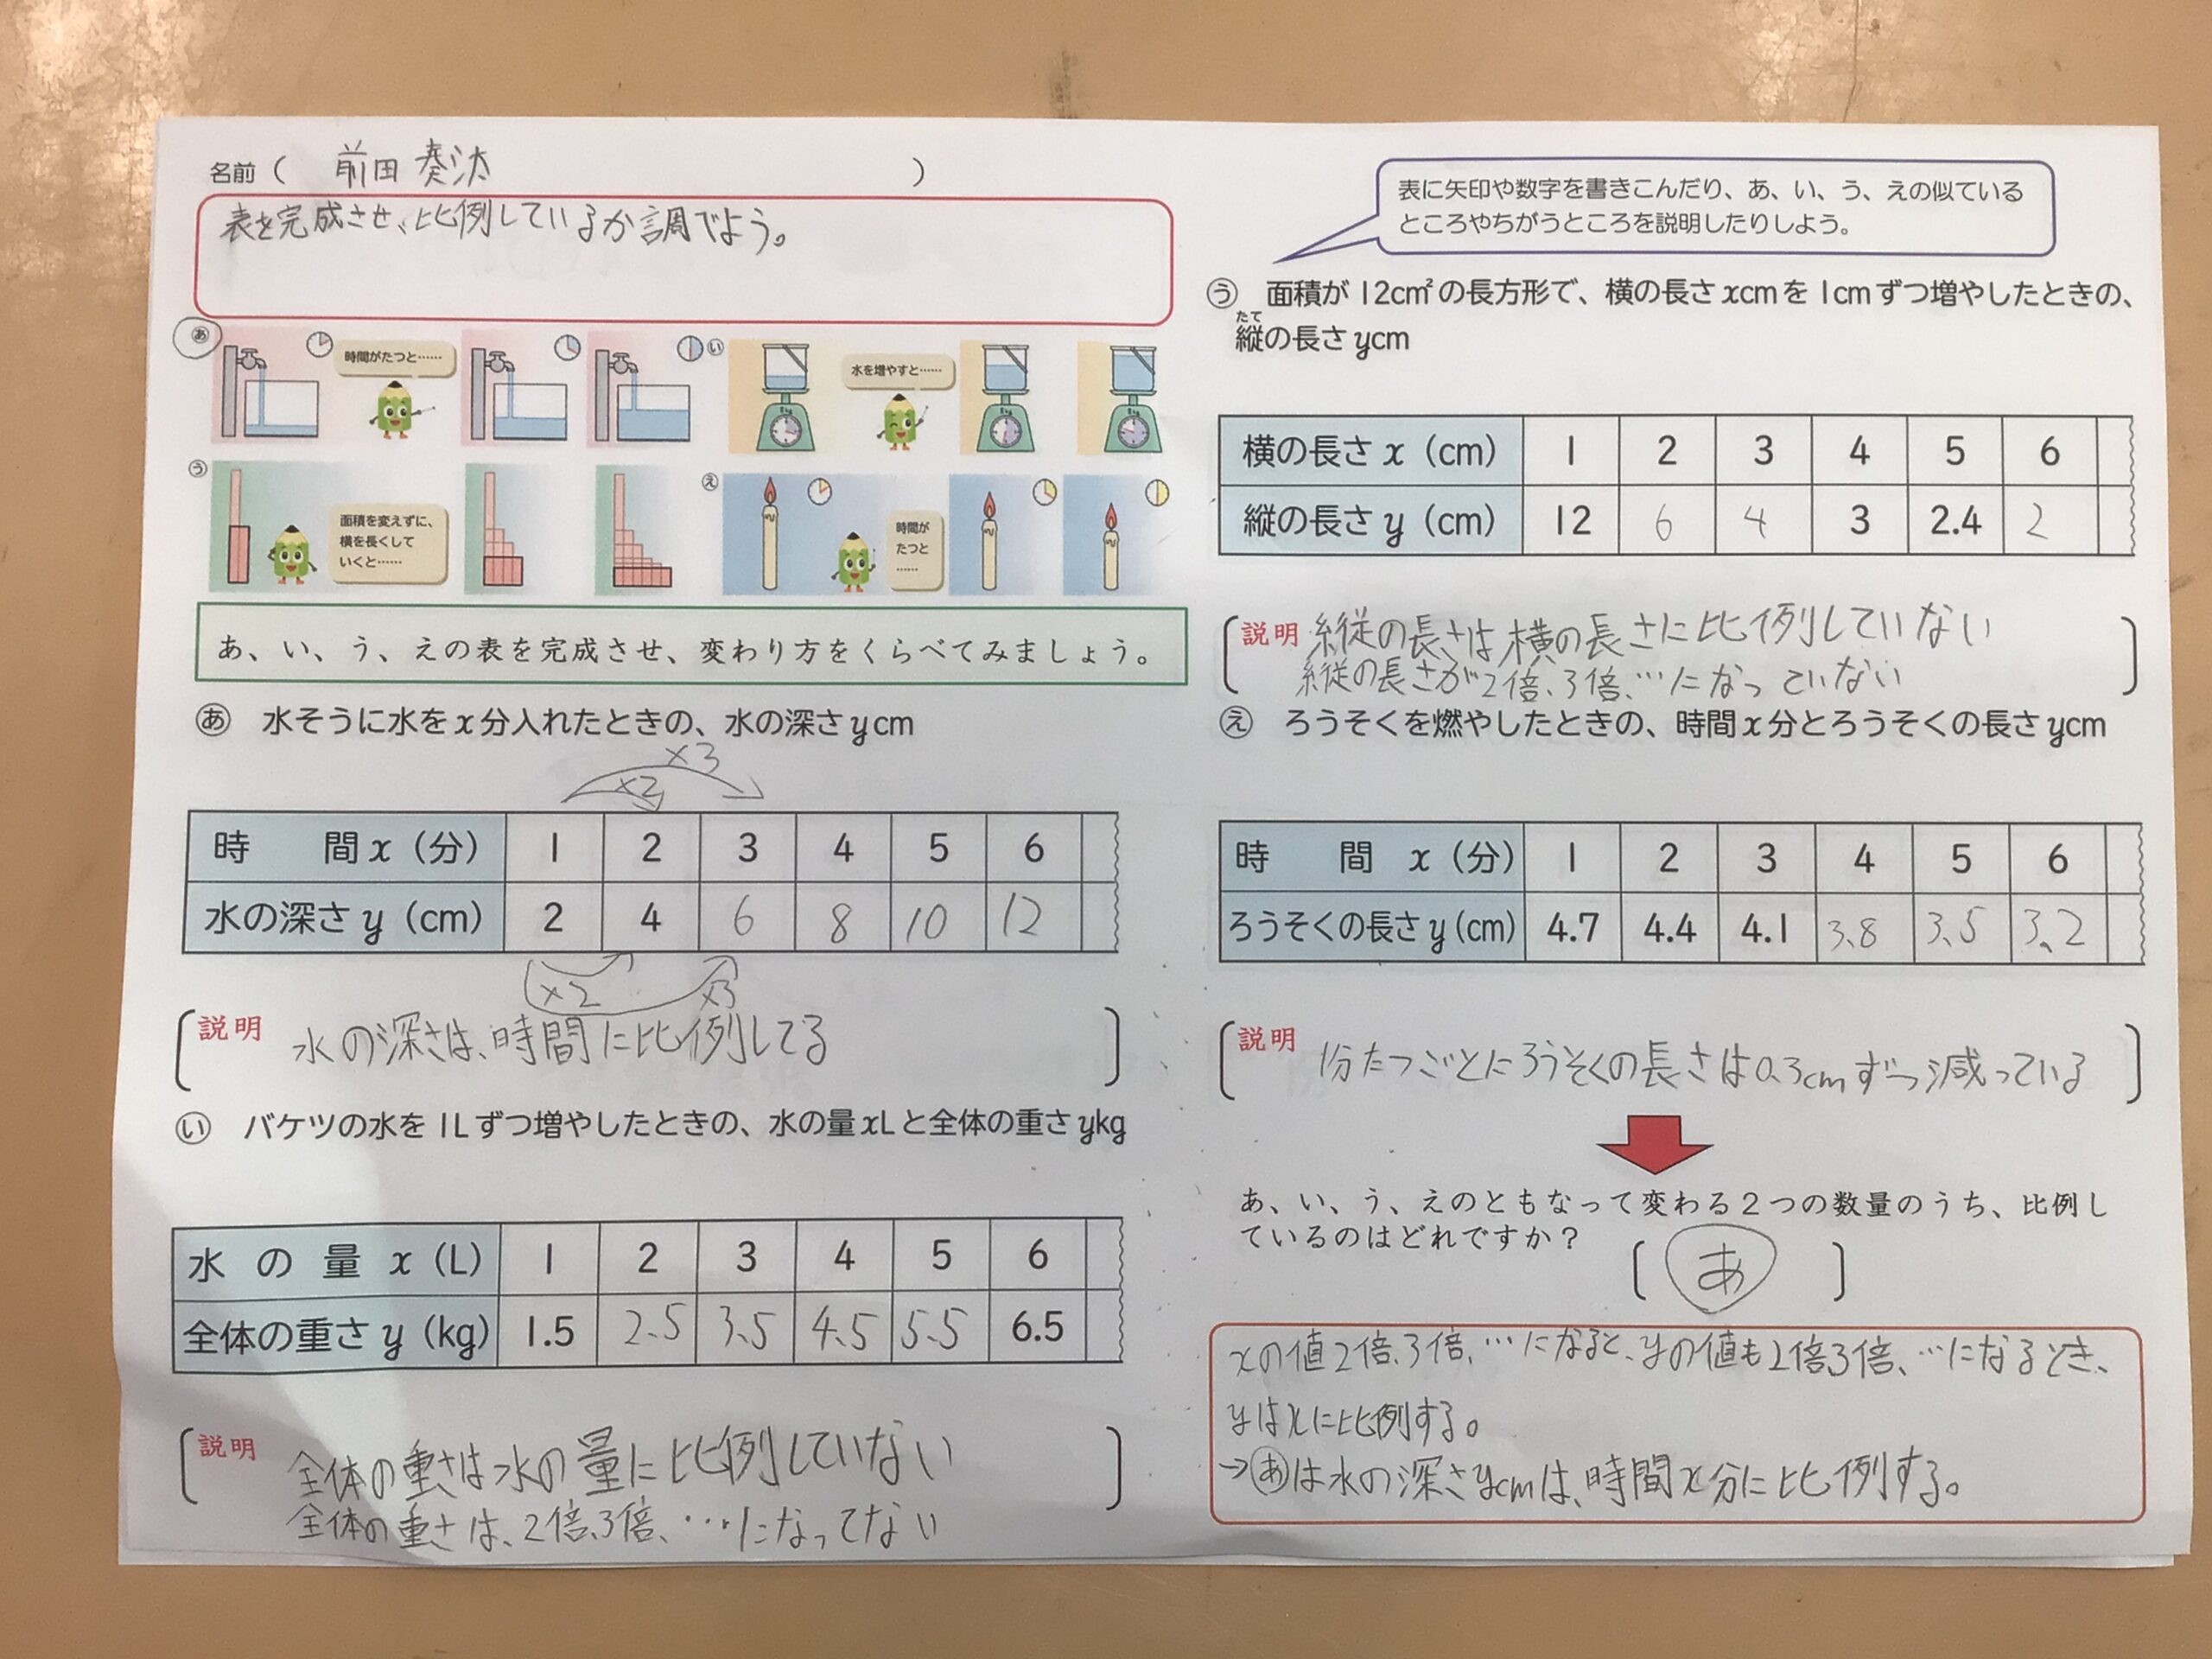 名前（ 前田 奏汰 ）
表を完成させ、比例しているか調べよう。
あ
時間がたつと……
い
水を増やすと……
う
面積を変えずに、
横を長くして
いくと……
え
時間が
たつと
……
あ、い、う、えの表を完成させ、変わり方をくらべてみましょう。
あ 水そうに水をx分入れたときの、水の深さycm
×3
×2
時 間x（分） 1 2 3 4 5 6
水の深さy（cm） 2 4 6 8 10 12
×2 ×3
説明 水の深さは、時間に比例してる
い バケツの水を1Lずつ増やしたときの、水の量xLと全体の重さykg
水の量x（L） 1 2 3 4 5 6
全体の重さy（kg） 1.5 2.5 3.5 4.5 5.5 6.5
説明 全体の重さは水の量に比例していない
全体の重さは、2倍、3倍、…になってない
表に矢印や数字を書きこんだり、あ、い、う、えの似ている
ところやちがうところを説明したりしよう。
う 面積が12cm²の長方形で、横の長さxcmを1cmずつ増やしたときの、
たて
縦の長さycm
横の長さx（cm） 1 2 3 4 5 6
縦の長さy（cm） 12 6 4 3 2.4 2
説明 縦の長さは横の長さに比例していない
縦の長さが2倍、3倍、…になっていない
え ろうそくを燃やしたときの、時間x分とろうそくの長さycm
時 間 x（分） 1 2 3 4 5 6
ろうそくの長さy（cm） 4.7 4.4 4.1 3.8 3.5 3.2
説明 1分たつごとにろうそくの長さは0.3cmずつ減っている
あ、い、う、えのともなって変わる2つの数量のうち、比例し
ているのはどれですか？
［ あ ］
xの値2倍、3倍、…になると、yの値も2倍3倍、…になるとき、
yはxに比例する。
→あは水の深さycmは、時間x分に比例する。